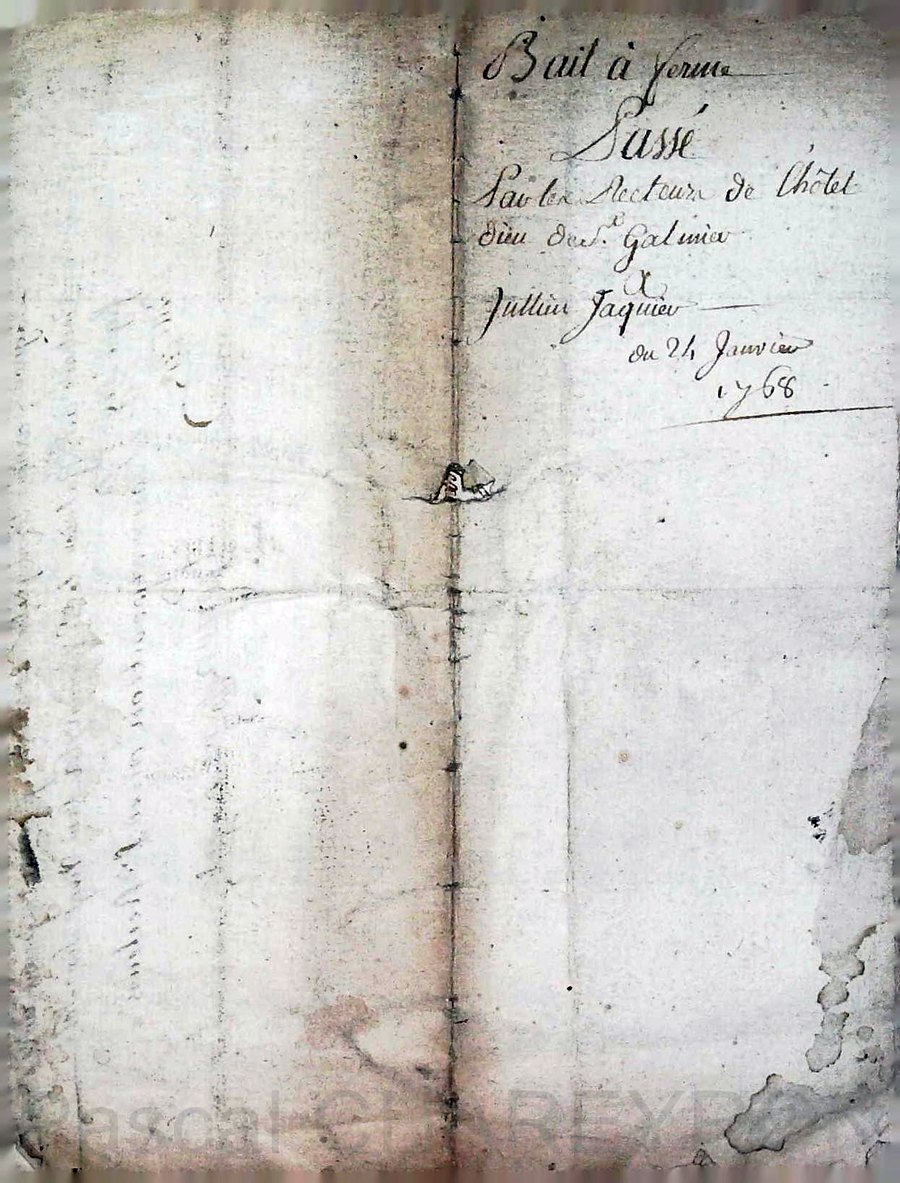 Bail à ferme
Passé
Par les Recteurs de L'hôtel
dieu de St. Galmier
A
Jullien Jaquier
du 24 Janvier
1768
Pascal CHAREYRON